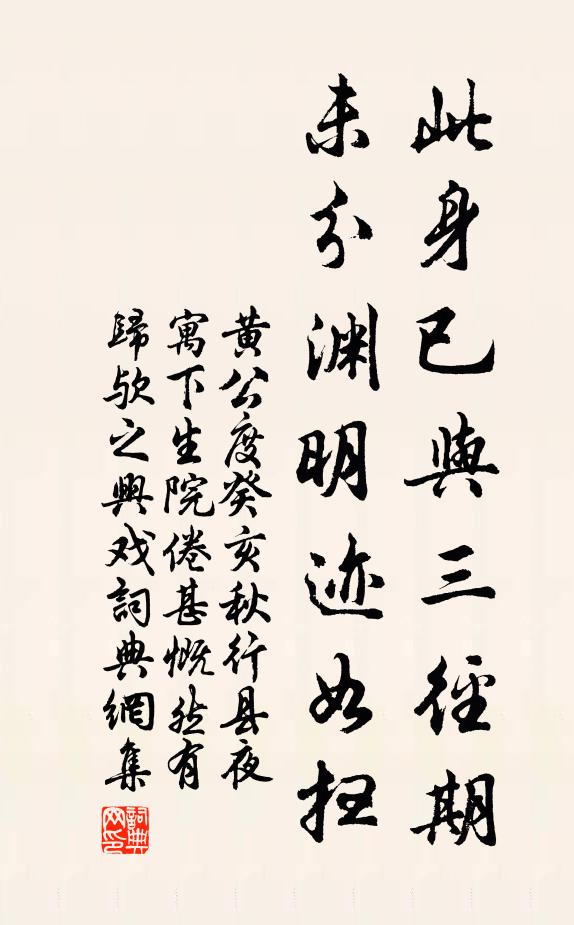 此身已與三徑期
未分渊明迹如扫
黄公度癸亥秋行县夜
寓下生院倦甚慨然有
歸欤之興戏詞典網集
詞典
网印